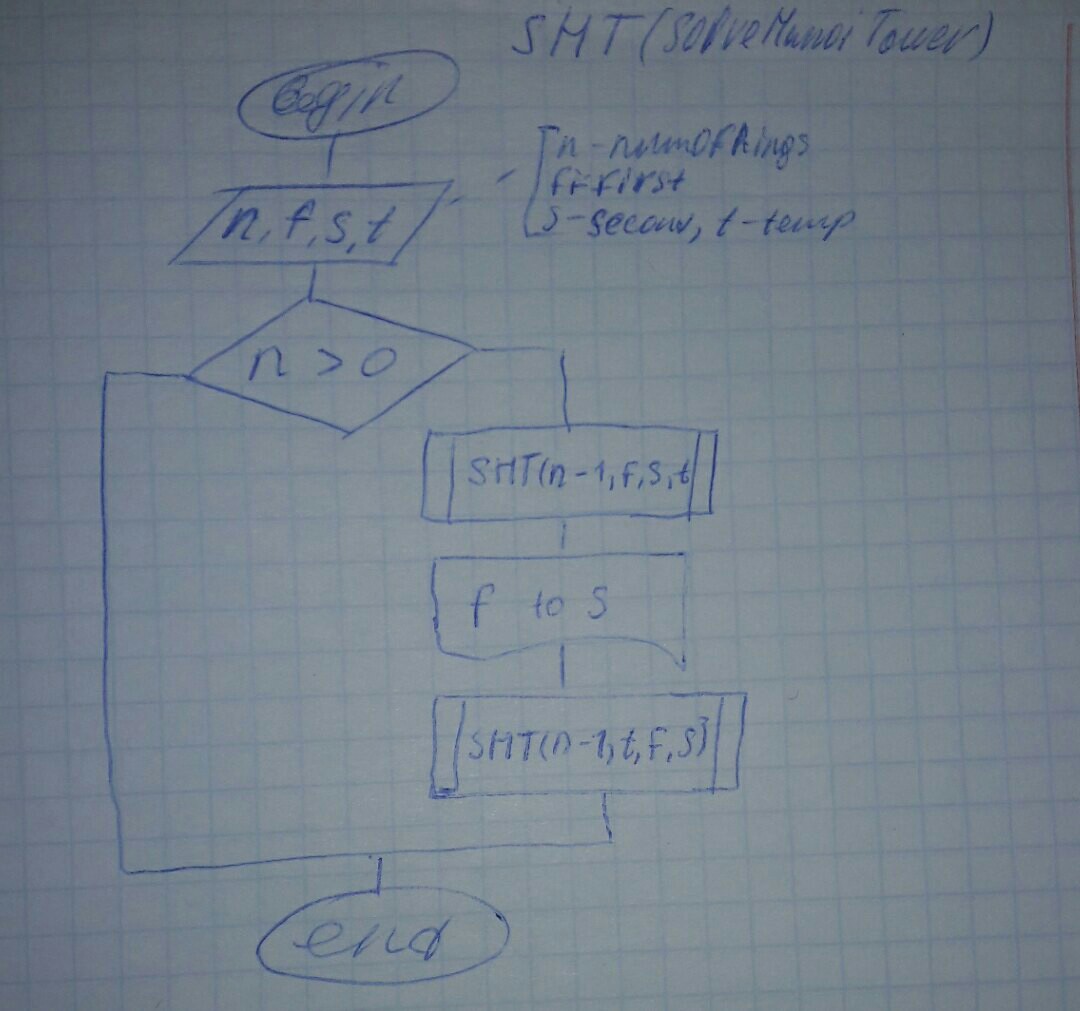 SHT (SolveHanoi Tower)
Begin
n - numOfRings
f - first
s - second, t - temp
n, f, s, t
n > 0
SHT(n-1, f, s, t
f to s
SHT(n-1, t, f, s)
end